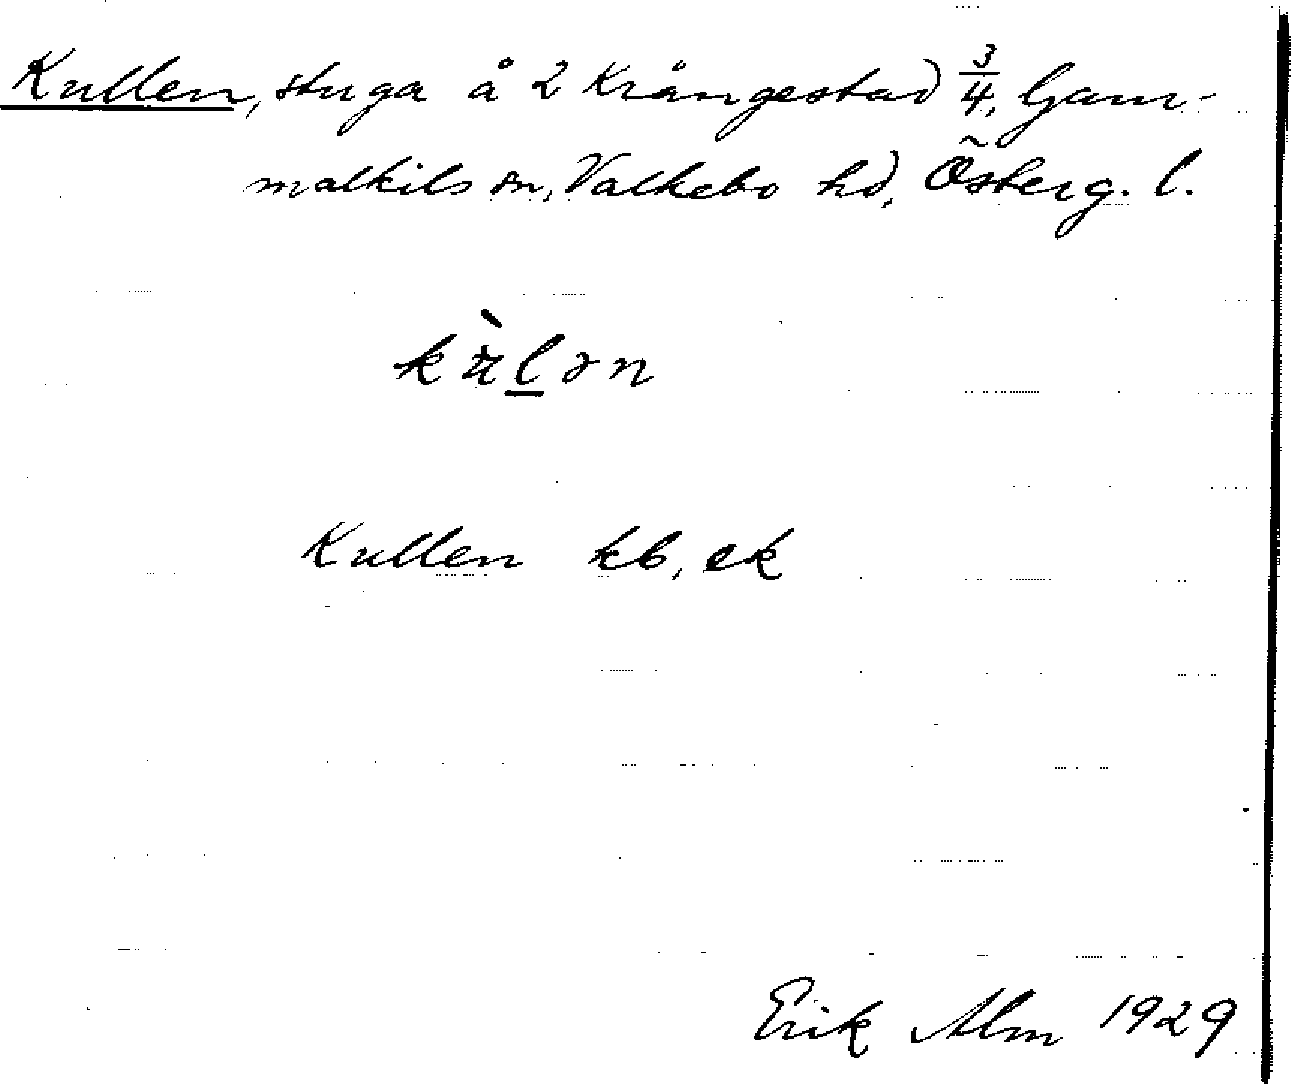 Kullen, stuga å 2 Krångestad 3/4, Gam-
malkils sn, Valkebo hd, Österg. l.
kùlən
Kullen kb, ek
Erik Alm 1929